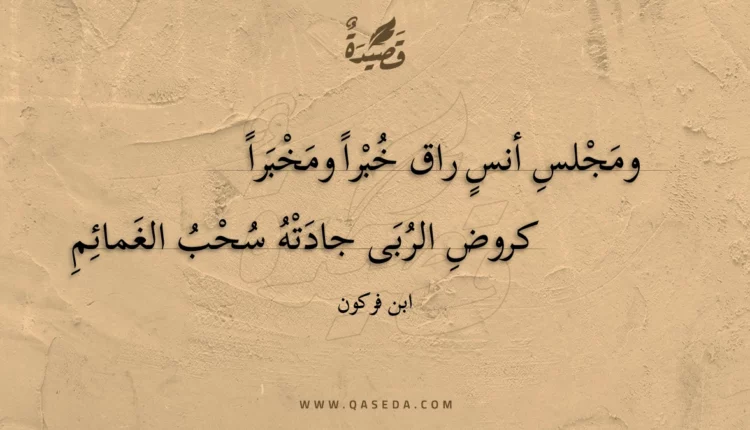 قَصِيْدَةٌ
ومَجْلسِ أنسٍ راق خُبْراً ومَخْبَراً
كروضِ الرُبَى جادَتْهُ سُحْبُ الغَمائِمِ
ابن فركون
WWW.QASEDA.COM